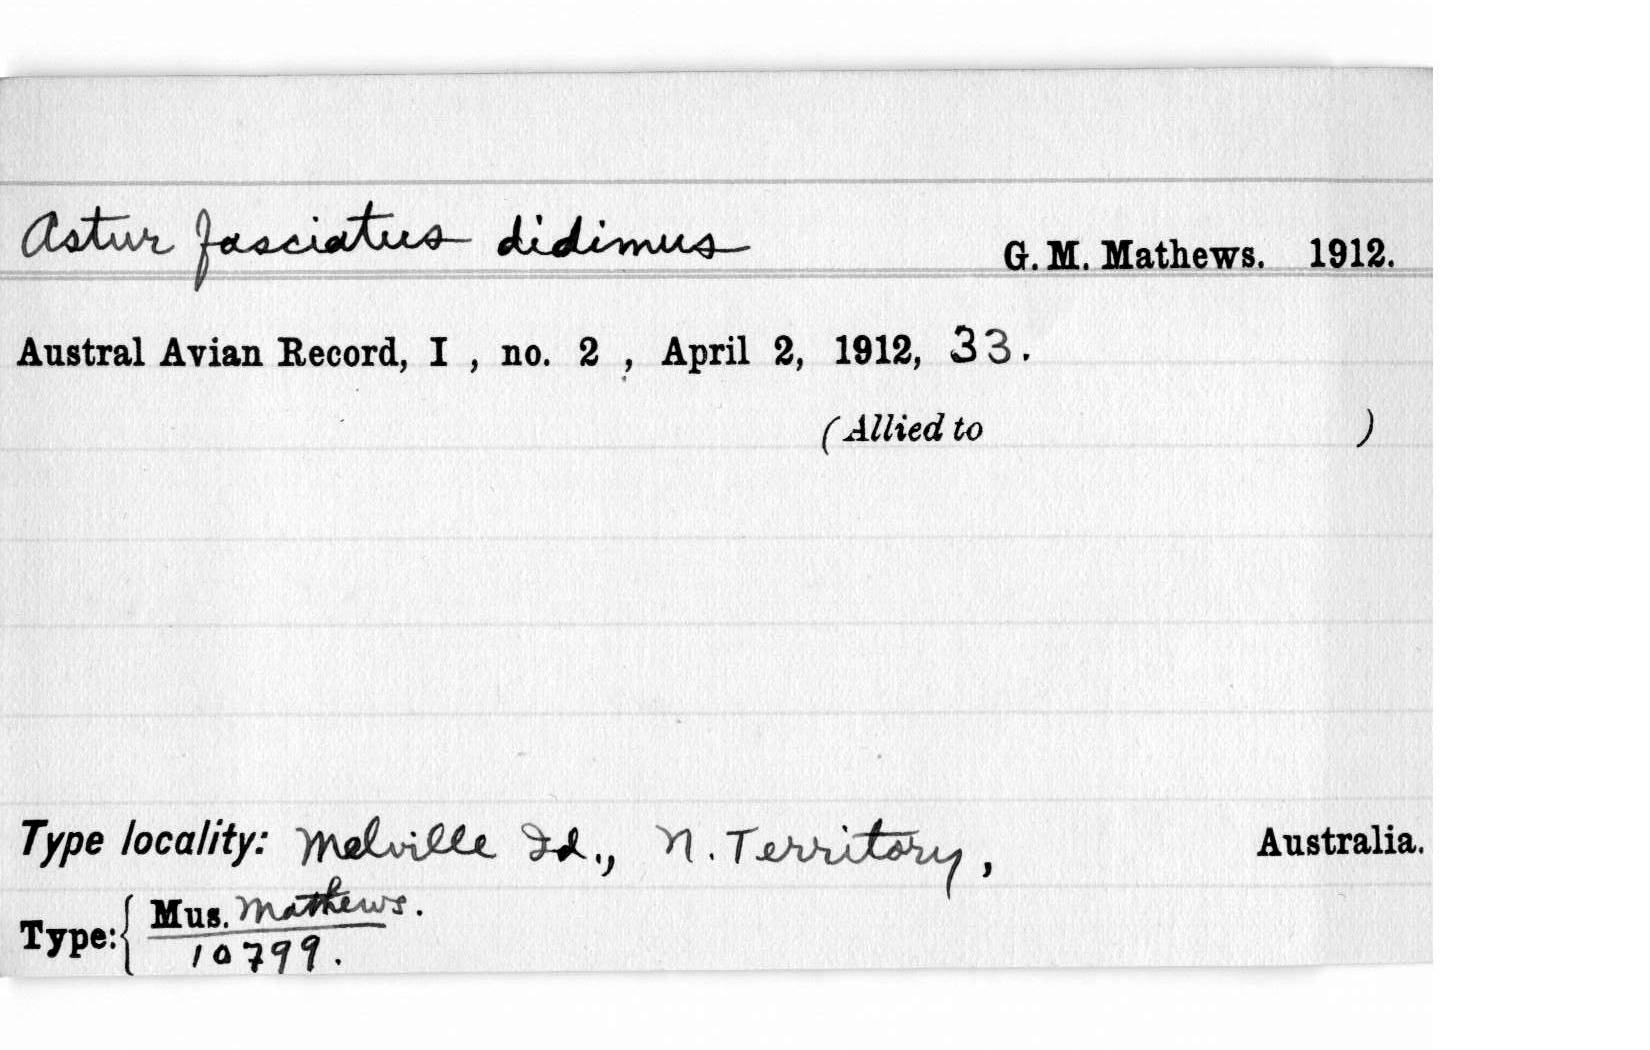 Astur fasciatus didimus G. M. Mathews. 1912.
Austral Avian Record, I , no. 2 , April 2, 1912, 33.
(Allied to )
Type locality: Melville Id., N. Territory, Australia.
Type: { Mus. Mathews.
10799.